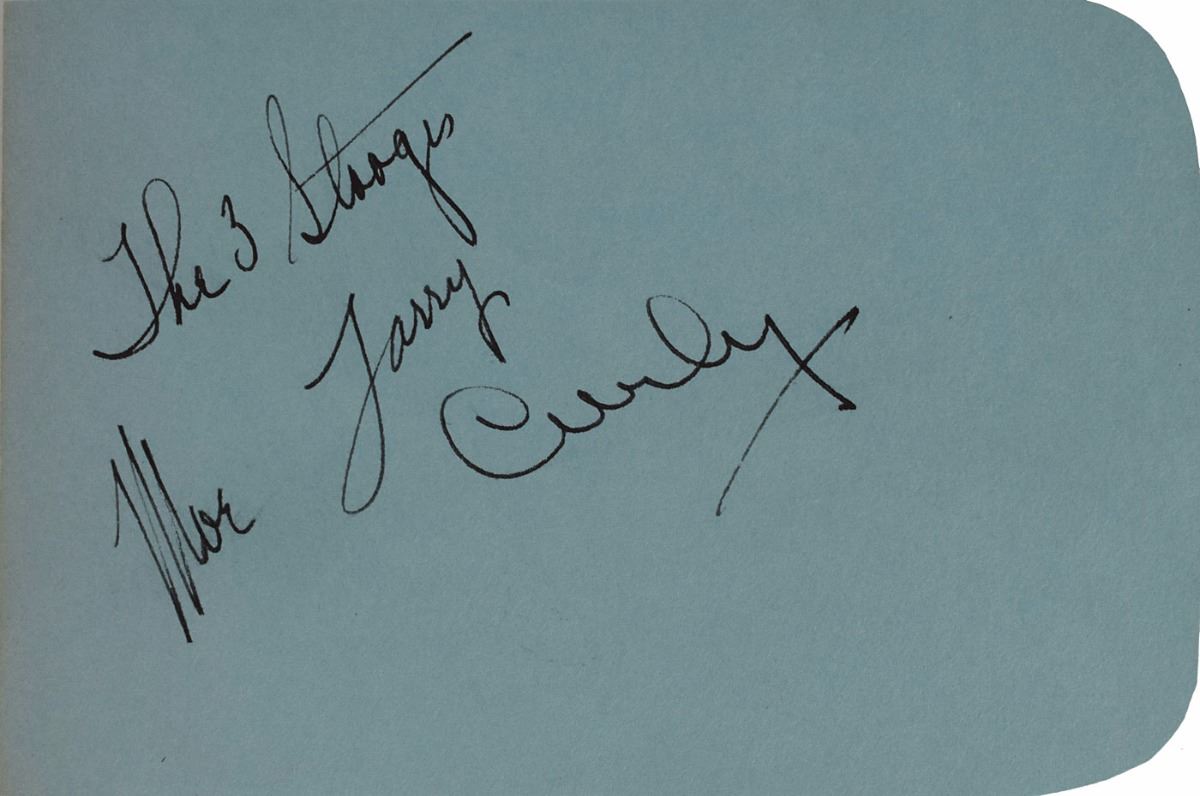 The 3 Stooges
Larry
Moe
Curly